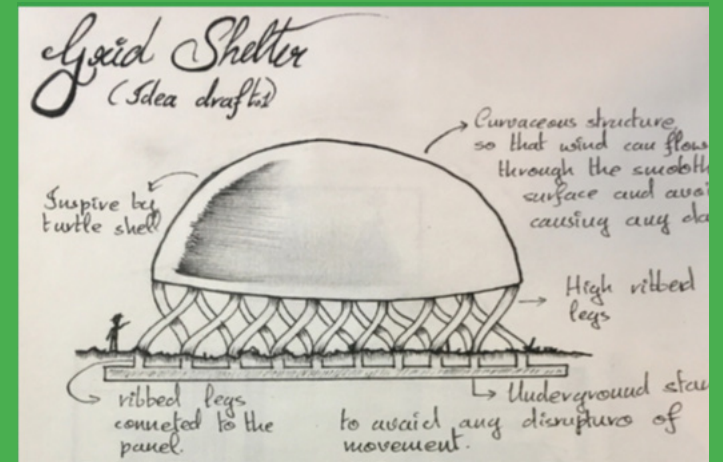 Grid Shelter
(Idea draft:1)
Curvaceous structure,
so that wind can flow
through the smooth
surface and avoi
causing any da
Inspire by
turtle shell
High ribbed
legs
ribbed legs
conneted to the
panel.
Underground sta
to avoid any disrupture of
movement.